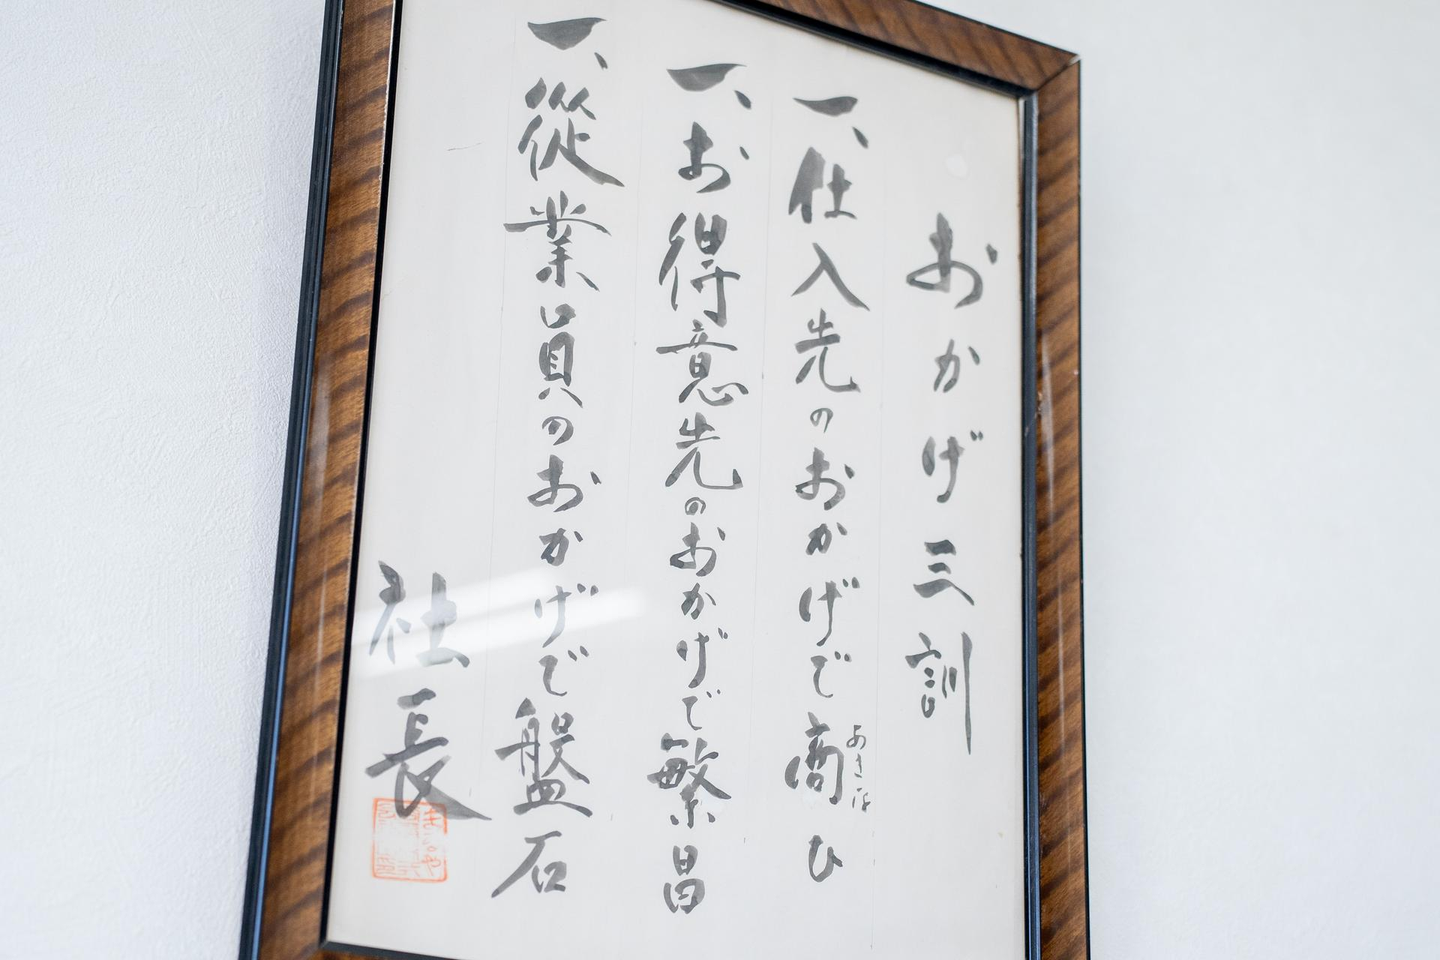 おかげ三訓
一、仕入先のおかげで商ひ
あきな
一、お得意先のおかげで繁昌
一、從業員のおかげで盤石
社長